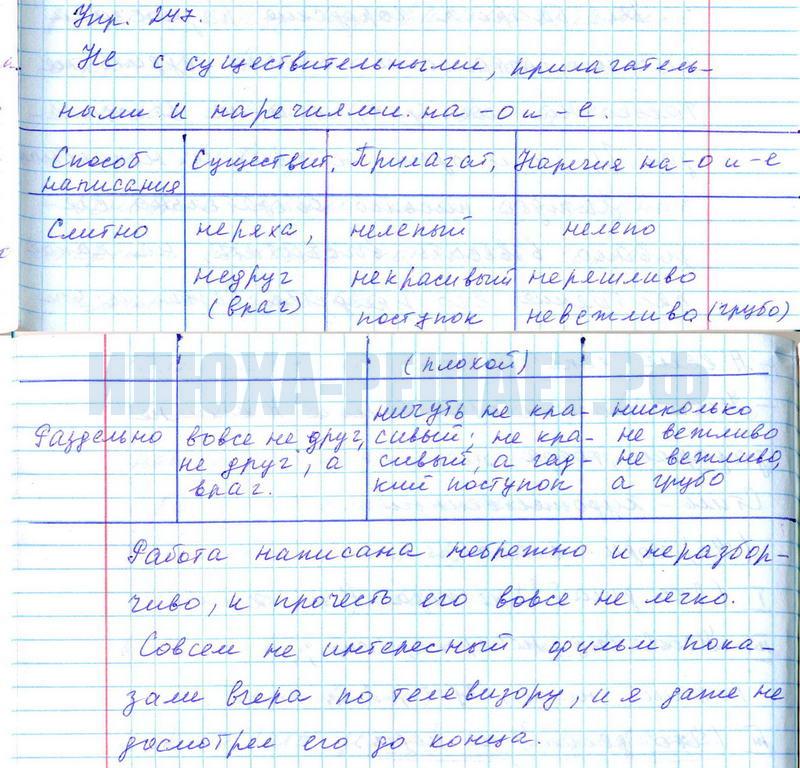 Упр. 247.
Не с существительными, прилагатель-
ными и наречиями на -о и -е.
Способ написания | Существит. | Прилагат. | Наречия на -о и -е
Слитно | неряха, | нелепый | нелепо
недруг | некрасивый | неряшливо
(враг) | поступок | невежливо (грубо)
(плохой)
ИЛЮХА-РЕШАЕТ.РФ
ничуть не кра- | нисколько
Раздельно | вовсе не друг, | сивый; не кра- | не вежливо
не друг, а | сивый, а гад- | не вежливо,
враг. | кий поступок | а грубо
Работа написана небрежно и неразбор-
чиво, и прочесть его вовсе не легко.
Совсем не интересный фильм пока-
зали вчера по телевизору, и я даже не
досмотрел его до конца.